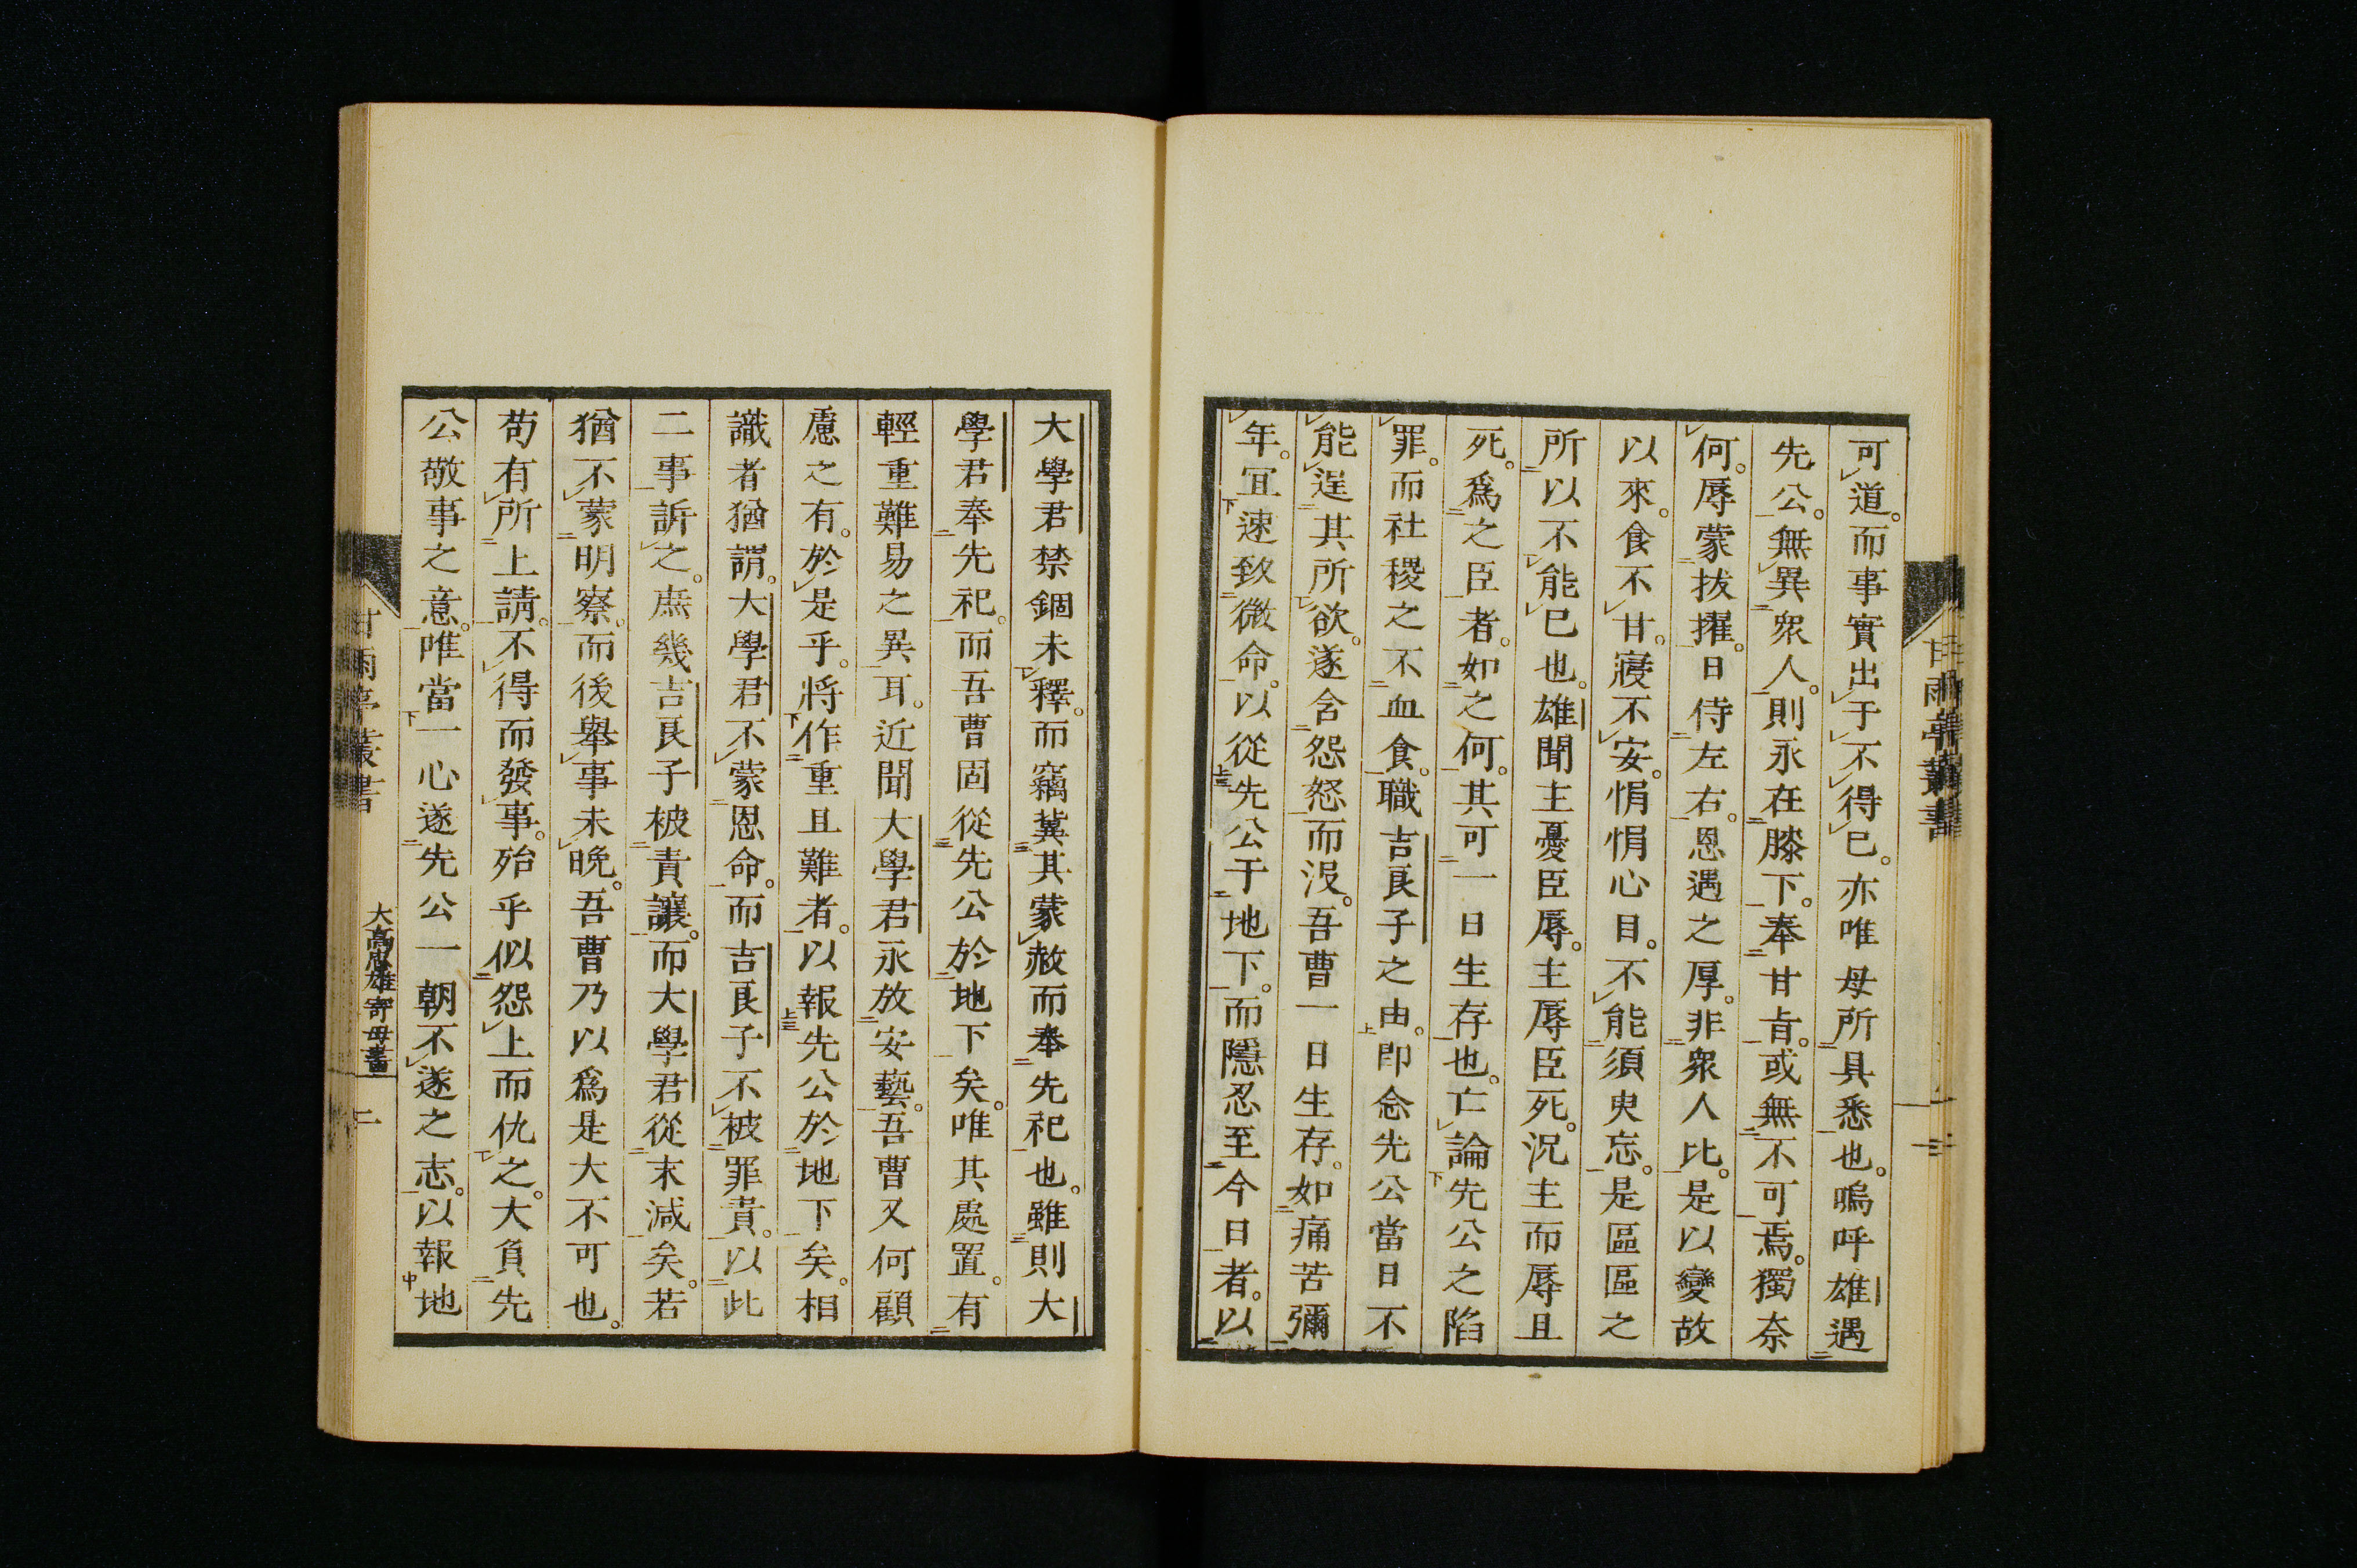 可道。而事實出于不得已。亦唯母所具悉也。嗚呼雄遇
先公。無異衆人。則永在膝下。奉甘旨。或無不可焉。獨奈
何。辱蒙拔擢。日侍左右。恩遇之厚。非衆人比。是以變故
以來。食不甘。寢不安。悁悁心目。不能須臾忘。是區區之
所以不能已也。雄聞主憂臣辱。主辱臣死。況主而辱且
死。爲之臣者。如之何。其可一日生存也。亡論先公之陷
罪。而社稷之不血食。職吉良子之由。卽念先公當日不
能逞其所欲。遂含怨怒而沒。吾曹一日生存。如痛苦彌
年。宜速致微命。以從先公于地下。而隱忍至今日者。以
甘雨亭叢書
大學君禁錮未釋。而竊冀其蒙赦而奉先祀也。雖則大
學君奉先祀。而吾曹固從先公於地下矣。唯其處置。有
輕重難易之異耳。近聞大學君永放安藝。吾曹又何顧
慮之有。於是乎。將作重且難者。以報先公於地下矣。相
識者猶謂。大學君不蒙恩命。而吉良子不被罪責。以此
二事訴之。庶幾吉良子被責讓。而大學君從末減矣。若
猶不蒙明察。而後舉事未晚。吾曹乃以爲是大不可也。
苟有所上請。不得而發事。殆乎似怨上而仇之。大負先
公敬事之意。唯當一心遂先公一朝不遂之志。以報地
甘雨亭叢書 大高忠雄寄母書 二